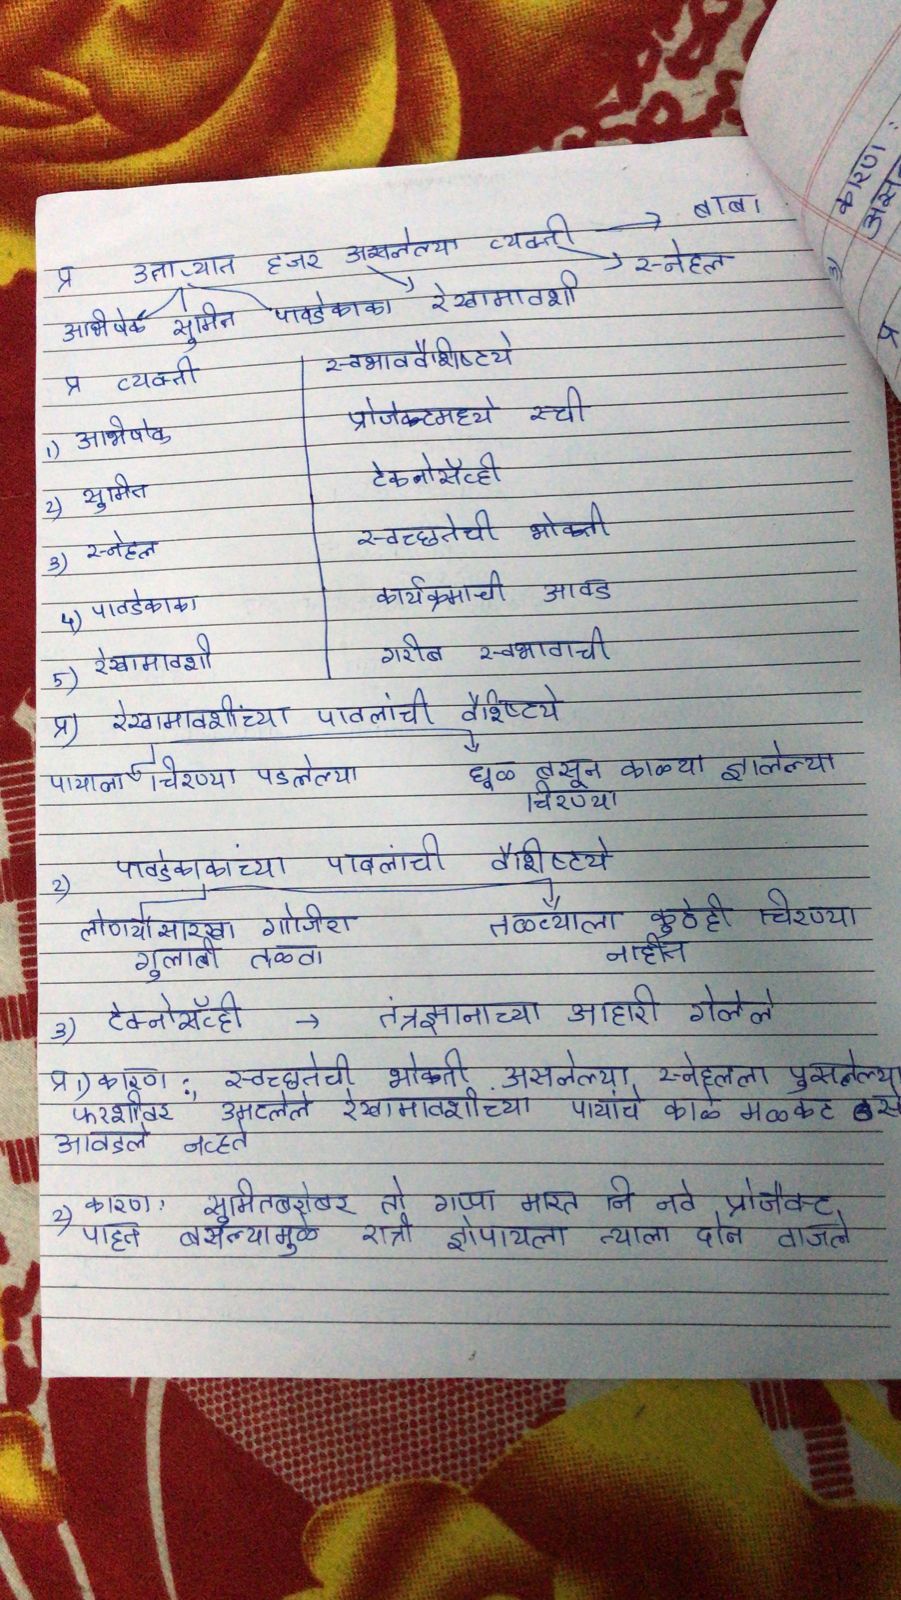 प्र उताऱ्यात हजर असलेल्या व्यक्ती → बाबा
स्नेहल
अभिषेक सुमित पावडेकाका रेखामावशी
प्र व्यक्ती स्वभाववैशिष्ट्ये
1) अभिषेक प्रोजेक्टमध्ये रुची
2) सुमित टेक्नोसॅव्ही
3) स्नेहल स्वच्छतेची भोक्ती
4) पावडेकाका कार्यक्रमाची आवड
5) रेखामावशी गरीब स्वभावाची
प्र) रेखामावशींच्या पावलांची वैशिष्ट्ये
पायाला चिरण्या पडलेल्या धूळ बसून काळ्या झालेल्या
चिरण्या
2) पावडेकाकांच्या पावलांची वैशिष्ट्ये
लोण्यासारखा गोजिरा तळव्याला कुठेही चिरण्या
गुलाबी तळवा नाहीत
3) टेक्नोसॅव्ही → तंत्रज्ञानाच्या आहारी गेलेले
प्र 1) कारण : स्वच्छतेची भोक्ती असलेल्या स्नेहलला पुसलेल्या
फरशीवर उमटलेले रेखामावशीच्या पायांचे काळे मळकट ठसे
आवडले नव्हते
2) कारण : सुमितबरोबर तो गप्पा मारत नि नवे प्रोजेक्ट
पाहत बसल्यामुळे रात्री झोपायला त्याला दोन वाजले
कारण :
3)
प्र